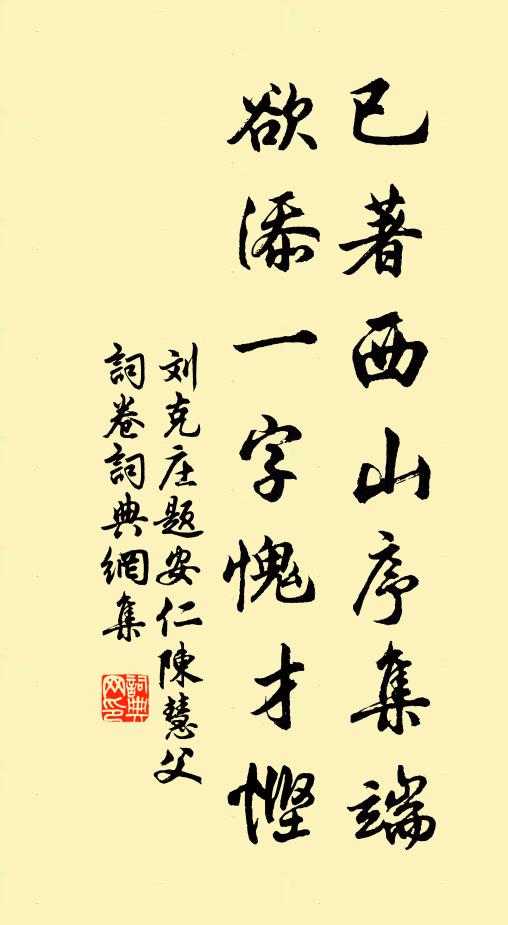 已著西山序集端
欲添一字愧才慳
刘克庄题安仁陳慧父
詞卷詞典網集
詞典网印